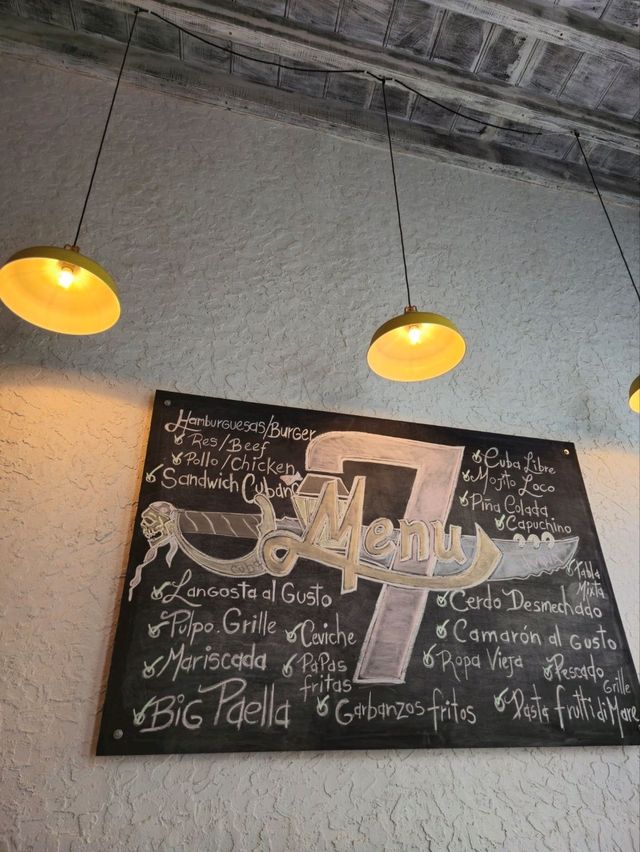 Hamburguesas/Burger
Res/Beef
Pollo/Chicken
Sandwich Cubano
Cuba Libre
Mojito Loco
Piña Colada
Capuchino
7
Menu
Cuba
Tabla
Mixta
Langosta al Gusto
Pulpo.Grille
Ceviche
Mariscada
Papas
fritas
Big Paella
Garbanzos fritos
Cerdo Desmechado
Camarón al gusto
Ropa Vieja
Pescado
Grille
Pasta frutti di Mare